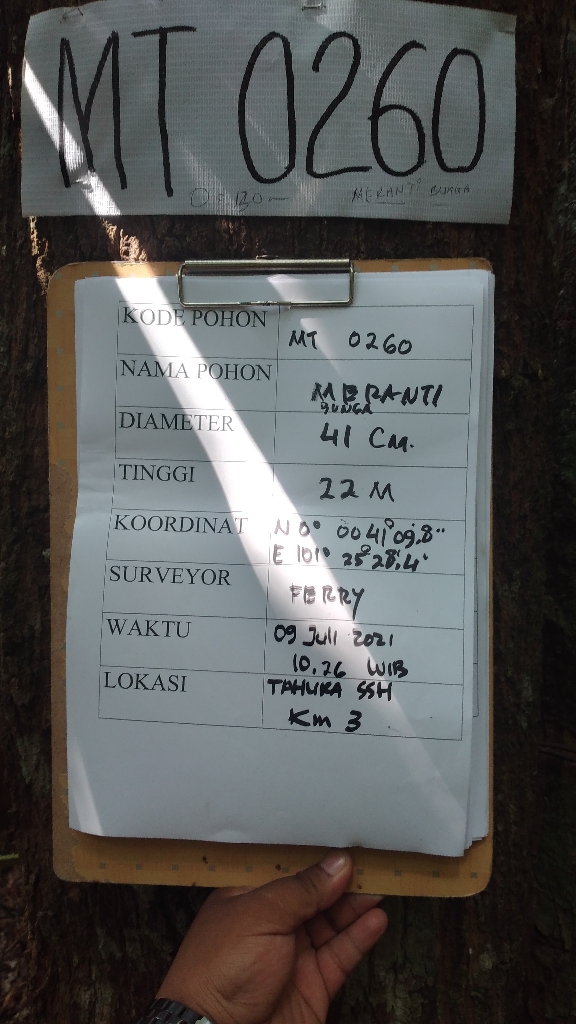 MT 0260
MERANTI BUNGA
KODE POHON MT 0260
NAMA POHON MERANTI
BUNGA
DIAMETER 41 CM.
TINGGI 22 M
KOORDINAT N 0° 0041°09,8"
E 101° 25°28,4'
SURVEYOR FERRY
WAKTU 09 Juli 2021
10.26 WIB
LOKASI TAHURA SSH
Km 3